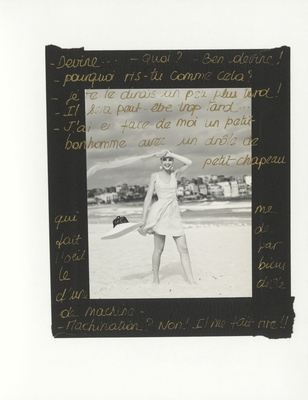 - Devine... - Quoi? - Ben devine!
- pourquoi ris-tu comme cela?
- je te le dirais un peu plus tard!
- Il sera peut-être trop tard...
- J'ai en face de moi un petit
bonhomme avec un drôle de
petit chapeau
qui me
fait de
l'oeil par
le biais
d'une drôle
de machine.
- Machination? Non! Il me fait rire!!